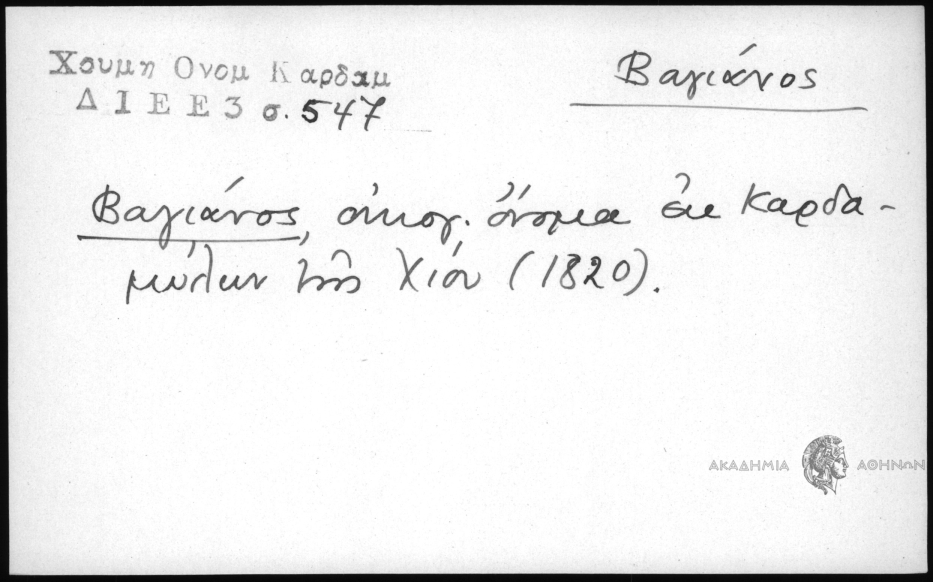 Χουμη Ονομ Καρδαμ
ΔΙΕΕ3 σ. 547
Βαγιάνος
Βαγιάνος, οἰκογ. ὄνομα ἐκ Καρδα-
μύλων τῆς Χίου (1820).
ΑΚΑΔΗΜΙΑ ΑΘΗΝΩΝ